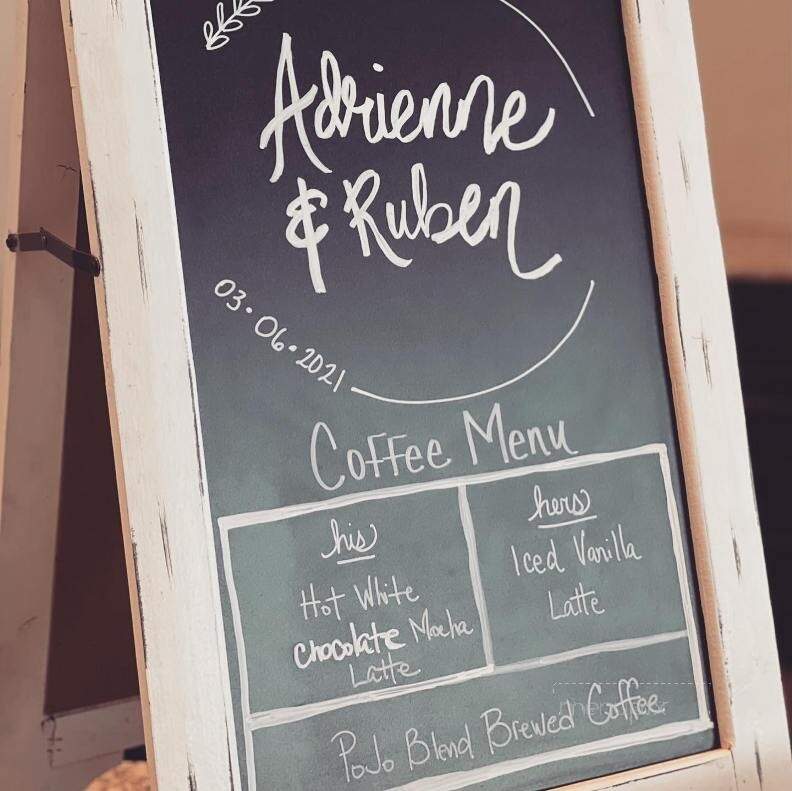 Adrienne
& Ruben
03·06·2021
Coffee Menu
his
Hot White
chocolate Mocha
Latte
hers
Iced Vanilla
Latte
PoJo Blend Brewed Coffee